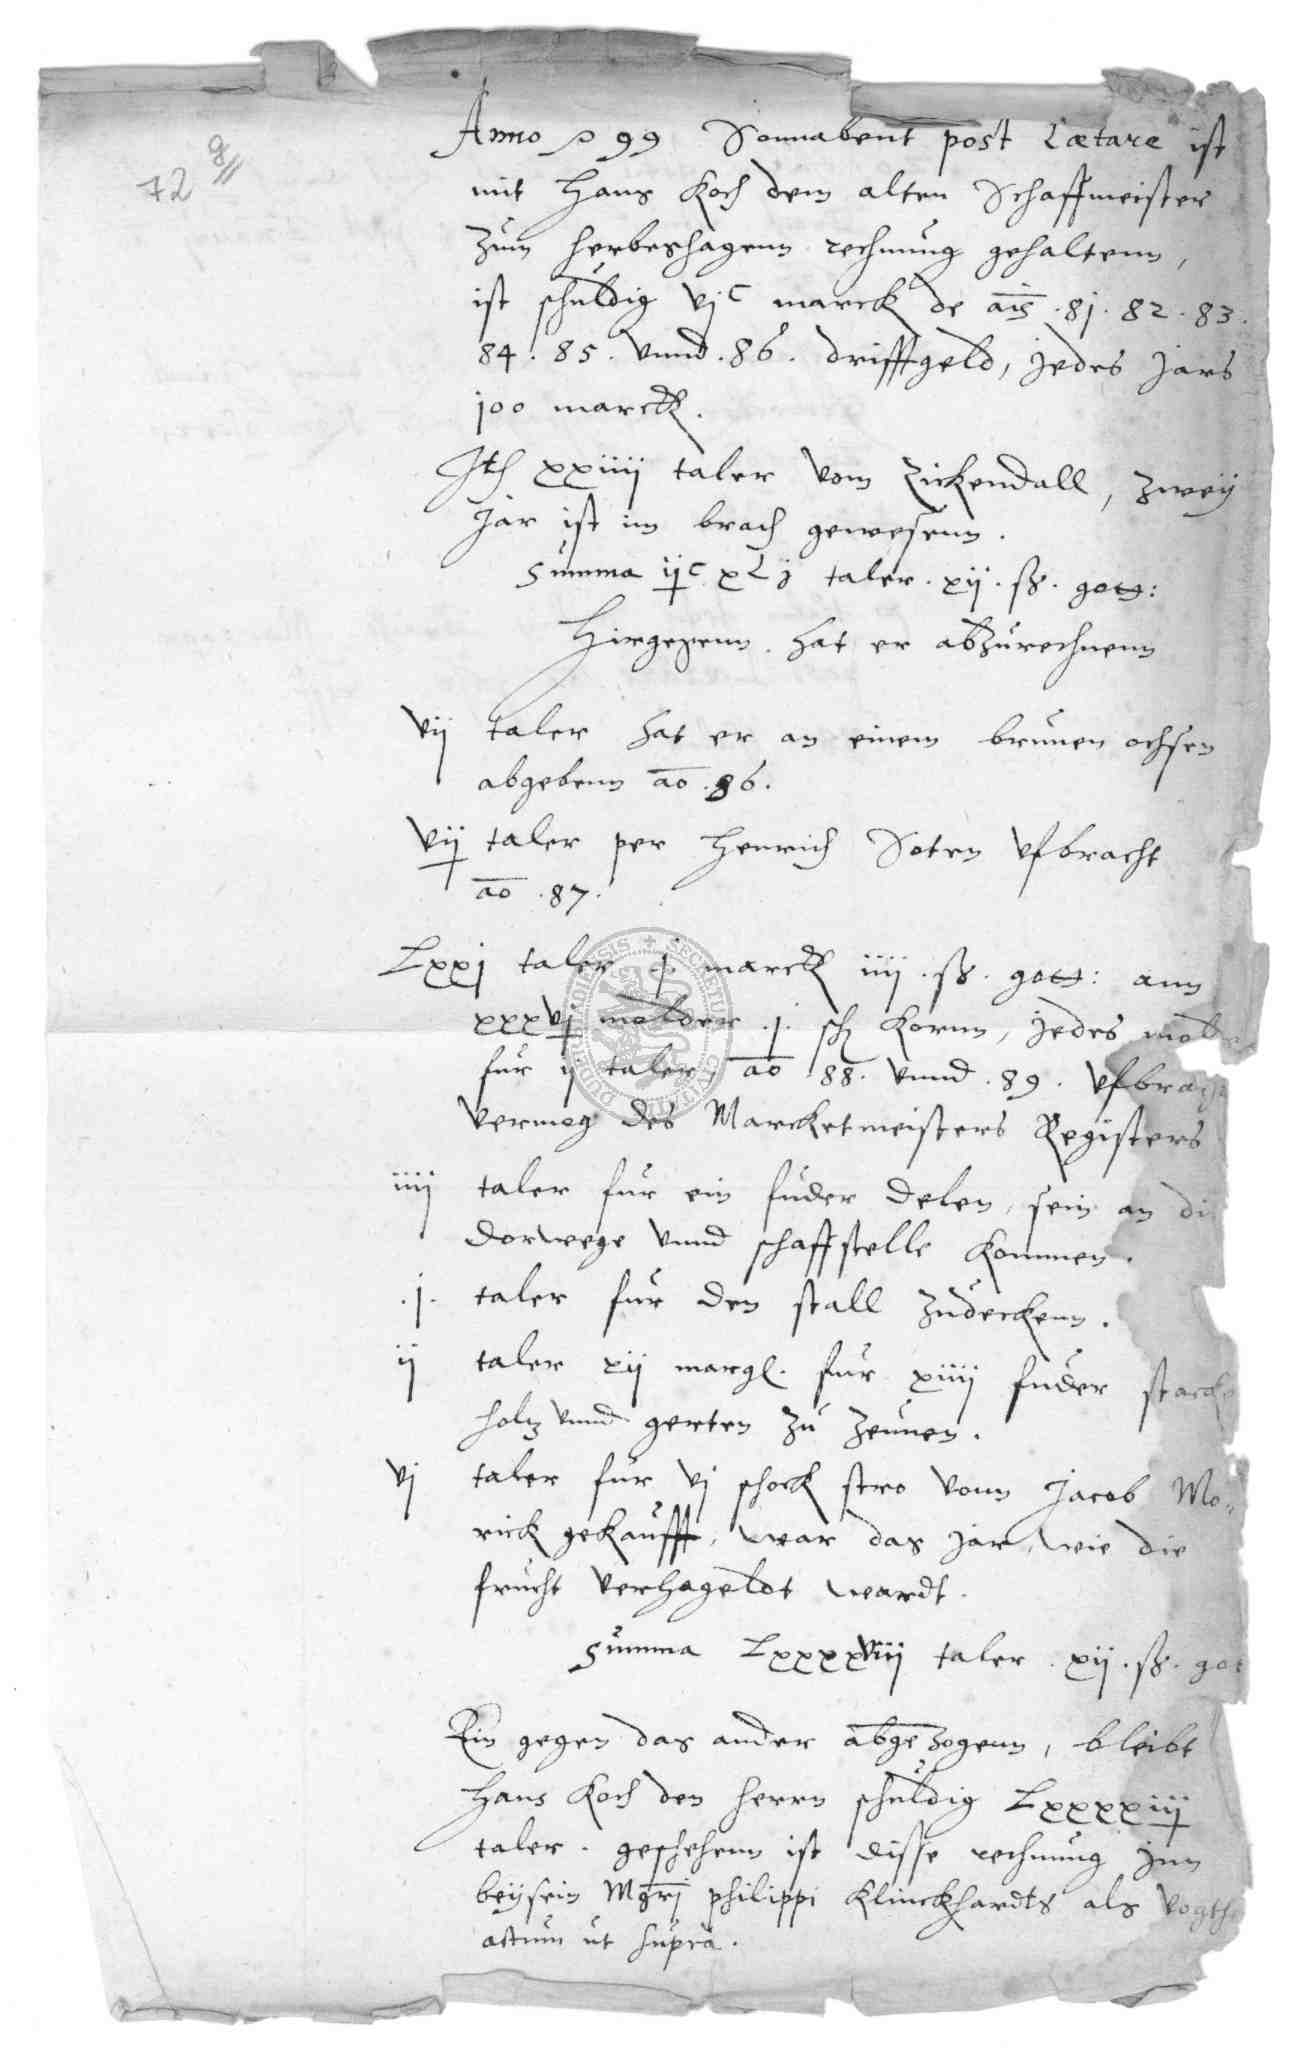 72 8
Anno 99 Sonnabent post Lætare ist
mit Hans Koch dem alten Schaffmeister
zum herbeshagenn rechnung gehaltenn,
ist schuldig vjc marck de ais .8j. 82. 83.
84. 85. vnnd .86. drifftgeld, jedes jars
j00 marck.
Jth xxiiij taler vom Zickendall, zweij
jar ist im brach gewesenn.
Summa ijc xLj taler. xij. ß. gott:
Hirgegenn hat er abzurechnenn
vij taler hat er an einem brunen ochsen
abgebenn ao .86.
vij taler per Henrich Soten vfbracht
ao .87.
Lxxj taler j marck iiij. ß. gott: ann
xxxvj molder .j. sch Kornn, jedes
fur ij taler, ao 88. vnnd .89.
vermog des Marcketmeisters Registers
iiij taler fur ein fuder delen, sein an
dorwege vnnd schaffstelle kommen.
.j. taler fur den stall zudeckenn.
ij taler xij margl. fur xiiij fuder
holtz vnnd gerten zu zeunen.
vj taler fur vj schock stro vonn Jacob Mo-
rick gekaufft, war das jar, wie die
frucht verhageldt wardt.
Summa Lxxxxviij taler xij. ß.
Ein gegen das ander abgezogenn, bleibt
Hans Koch den herrn schuldig Lxxxxiij
taler. geschehenn ist disse rechnung jnn
beijsein Mgrj philippi Klinckhardts als
actum ut supra.
SECRETUM CIVITATIS DUDERSTADIENSIS